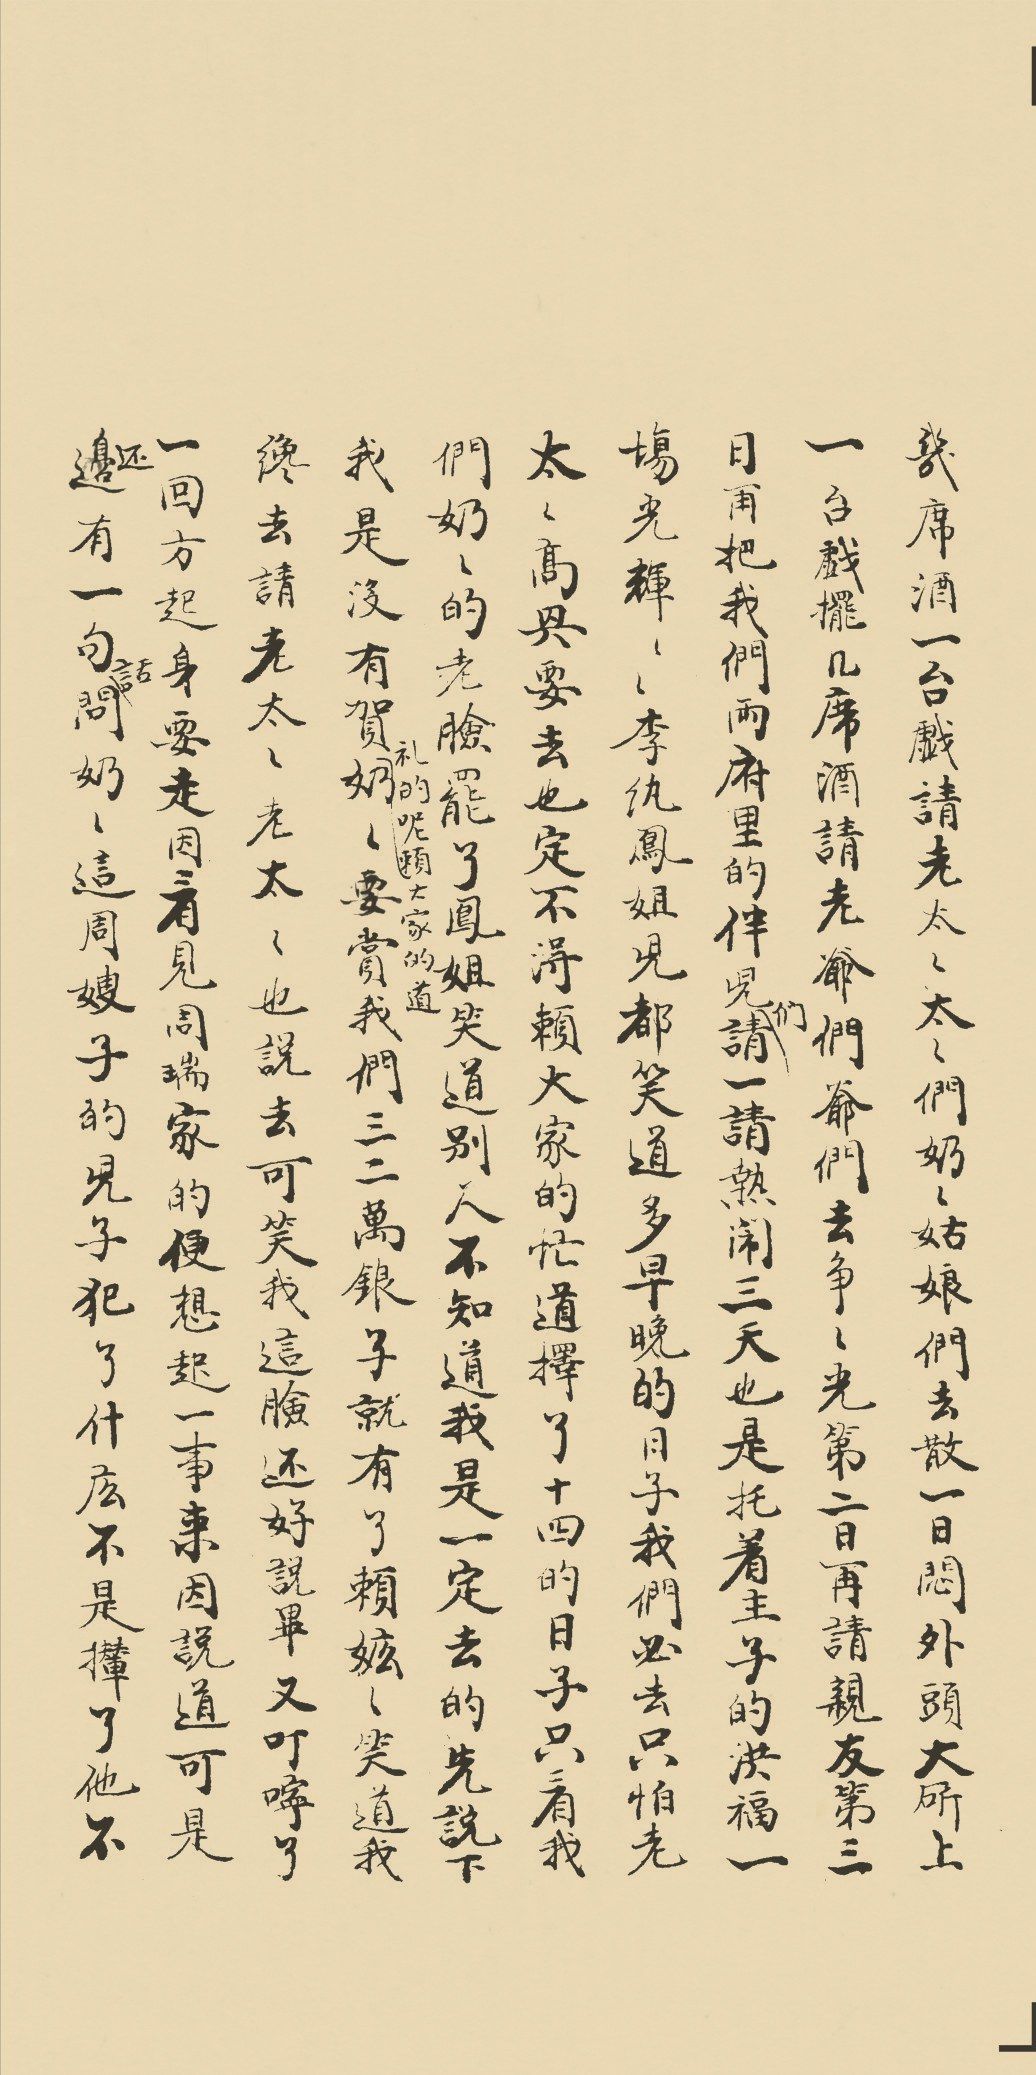 幾席酒一台戲請老太〻太〻們奶〻姑娘們去散一日悶外頭大㪽上
一台戲擺几席酒請老爺們爺們去争〻光第二日再請親友第三
日再把我們兩府里的伴児们請一請熱鬧三天也是托着主子的洪福一
塲光輝〻〻李紈鳳姐児都笑道多早晚的日子我們必去只怕老
太〻高興要去也定不得頼大家的忙道擇了十四的日子只看我
們奶〻的老臉罷了鳳姐笑道别人不知道我是一定去的先說下
我是没有賀礼的呢頼大家的道奶〻要賞我們三二萬銀子就有了頼嫲〻笑道我
纔去請老太〻老太〻也說去可笑我這臉还好說畢又叮嚀了
一回方起身要走因看見周瑞家的便想起一事来因説道可是
还邉有一句話問奶〻這周嫂子的児子犯了什庅不是攆了他不